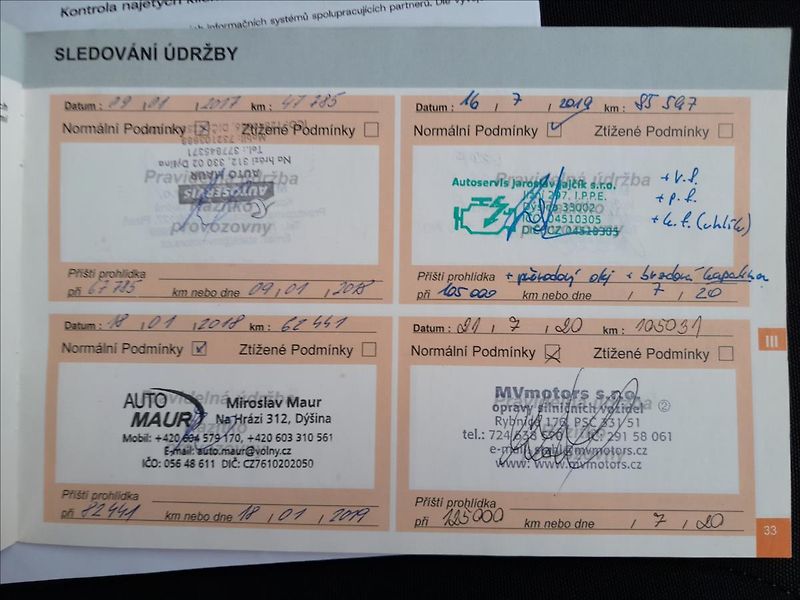 Kontrola najetých
ich informačních systémů spolupracujících partnerů.
SLEDOVÁNÍ ÚDRŽBY
Datum : 09 / 01 / 2017 km : 47 785
Normální Podmínky Ztížené Podmínky
Tel.: 377845371
Na hrázi 312, 330 02 Dýšina
AUTO MAUR
AUTOSERVIS
Pravidelná údržba
Razítko
provozovny
Příští prohlídka
při 67 785 km nebo dne 09 / 01 / 2018
Datum : 16 / 7 / 2019 km : 85 597
Normální Podmínky Ztížené Podmínky
Pravidelná údržba
Autoservis Jaroslav Jajčík s.r.o.
297, I.P.P.E.
Dýšina 33002
IČO: 04510305
DIČ: CZ 04510305
+ v.f.
+ p.f.
+ k.f. (uhlík)
Příští prohlídka + převodový olej + brzdová kapalina
při 105 000 km nebo dne / 7 / 20
Datum : 18 / 01 / 2018 km : 62 441
Normální Podmínky Ztížené Podmínky
Pravidelná údržba
AUTO MAUR
Miroslav Maur
Na Hrázi 312, Dýšina
Mobil: +420 604 579 170, +420 603 310 561
E-mail: auto.maur@volny.cz
IČO: 056 48 611 DIČ: CZ7610202050
Příští prohlídka
při 82 441 km nebo dne 18 / 01 / 2019
Datum : 21 / 7 / 20 km : 105031
Normální Podmínky Ztížené Podmínky
MVmotors s.r.o.
opravy silničních vozidel ②
Rybnice 176, PSČ 331 51
tel.: 724 638 IČ: 291 58 061
www: www.mvmotors.cz
Příští prohlídka
při 125000 km nebo dne / 7 / 20
III
33